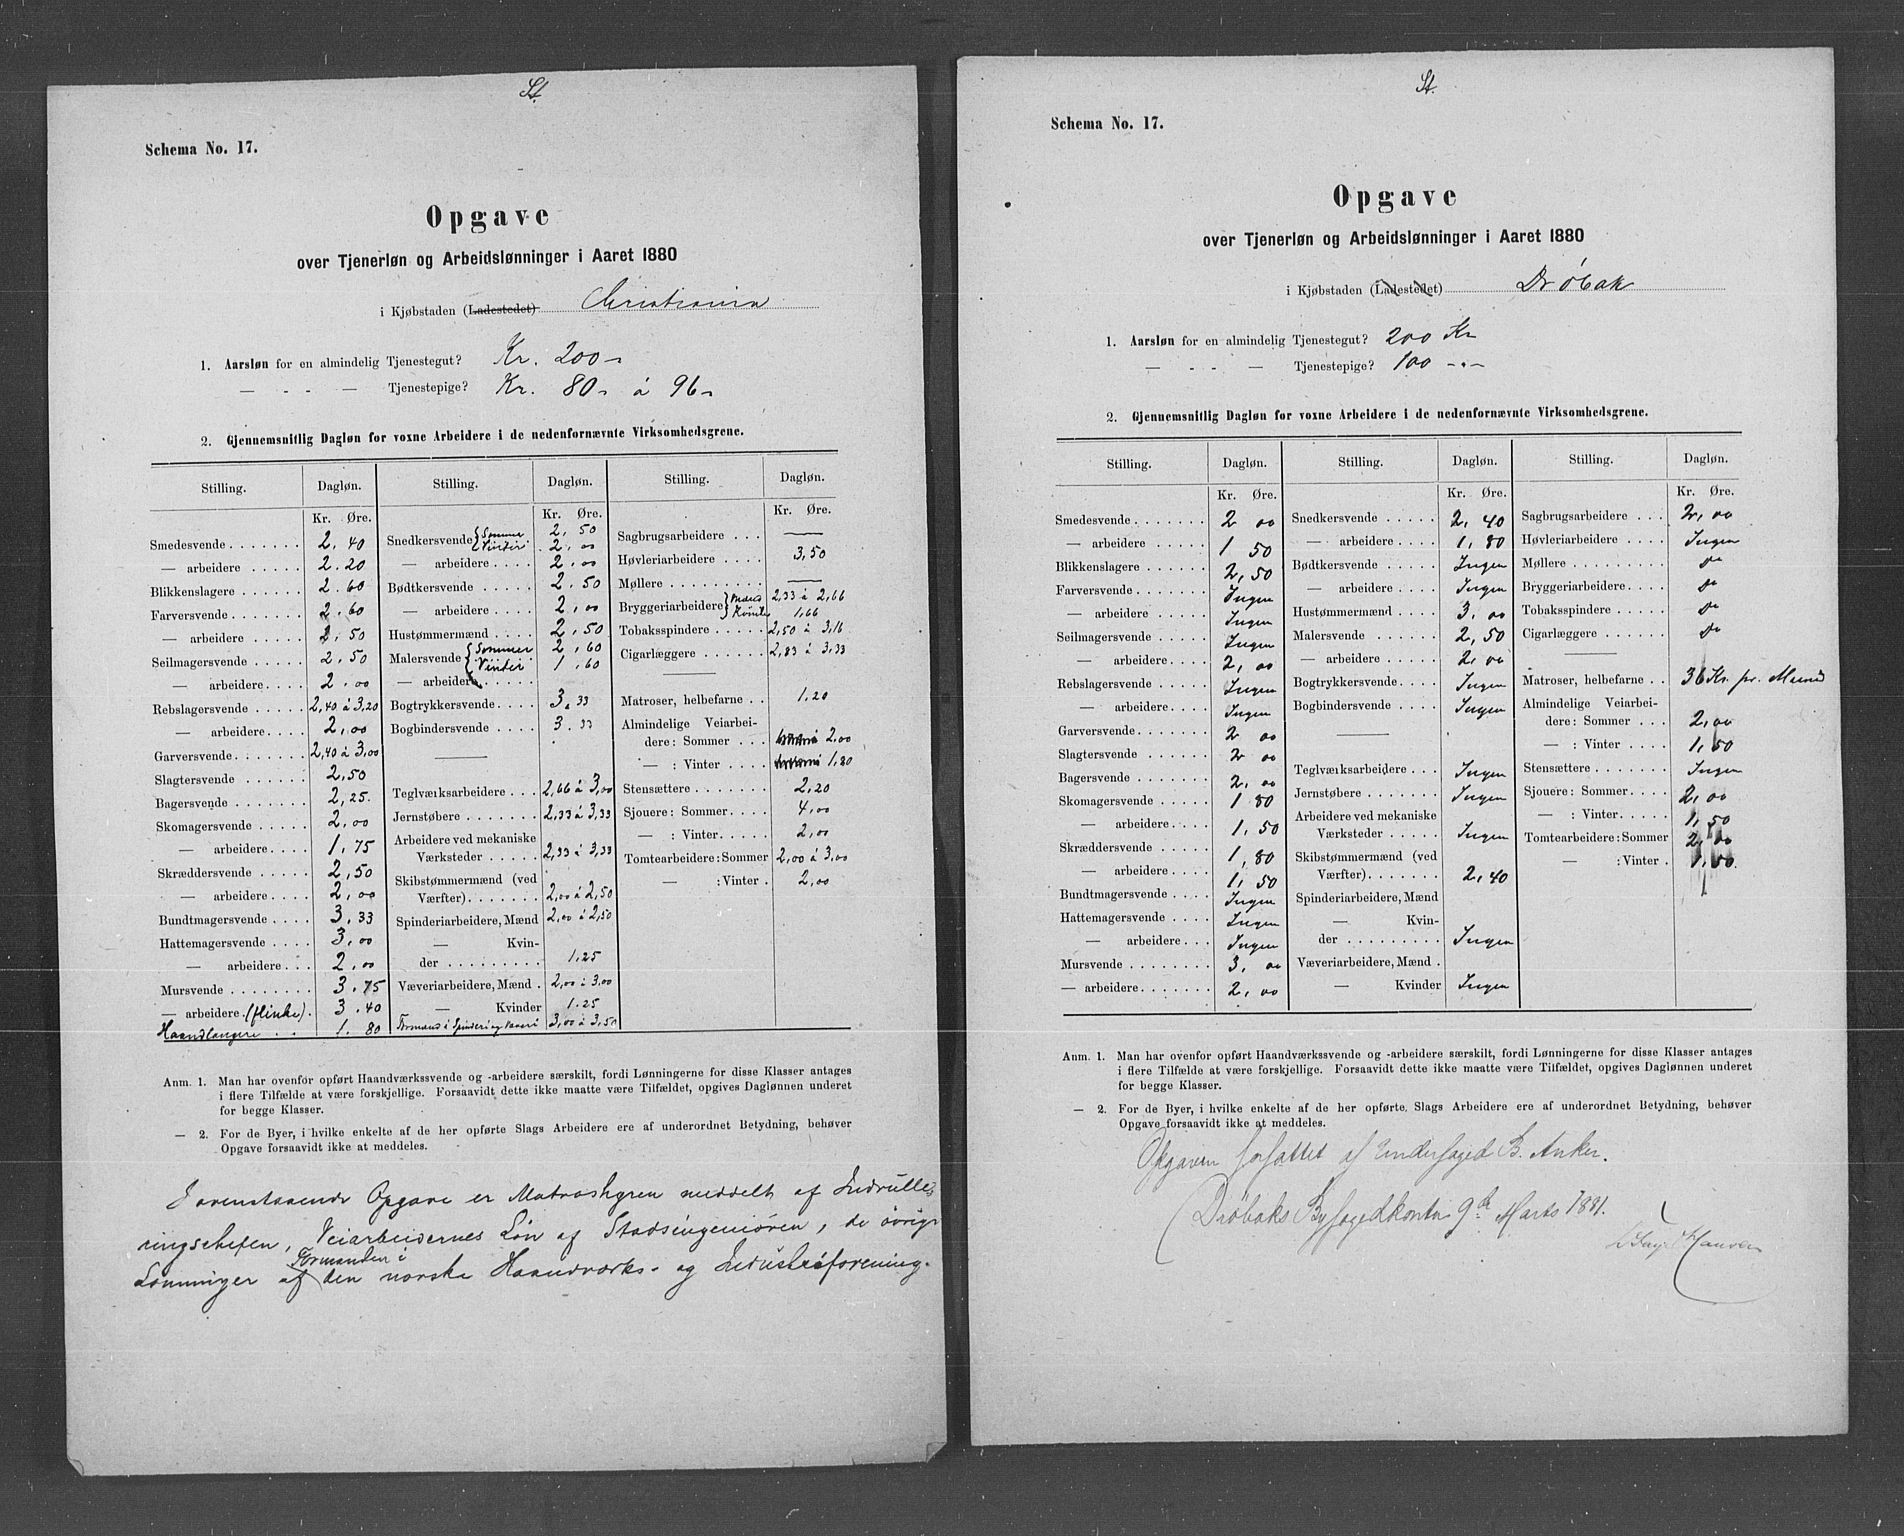 St.
Schema No. 17.
Opgave
over Tjenerløn og Arbeidslønninger i Aaret 1880
i Kjøbstaden (Ladestedet) Christiania
1. Aarsløn for en almindelig Tjenestegut? Kr. 200
— - - — Tjenestepige? Kr. 80 à 96
2. Gjennemsnitlig Dagløn for voxne Arbeidere i de nedenfornævnte Virksomhedsgrene.
Stilling. Dagløn. Stilling. Dagløn. Stilling. Dagløn.
Kr. Øre. Kr. Øre. Kr. Øre.
Smedesvende 2. 40
— arbeidere 2. 20
Blikkenslagere 2. 60
Farversvende 2. 60
— arbeidere 2. 50
Seilmagersvende 2. 50
— arbeidere 2. 00
Rebslagersvende 2,40 à 3,20
— arbeidere 2,00
Garversvende 2,40 à 3,00
Slagtersvende 2,50
Bagersvende 2,25
Skomagersvende 2,00
— arbeidere 1,75
Skræddersvende 2,50
— arbeidere 2,00
Bundtmagersvende 3.33
Hattemagersvende 3,00
— arbeidere 2,00
Mursvende 3.75
— arbeidere (flinke) 3.40
Haandlangere 1.80
Snedkersvende { Sommer 2, 50
Vinter 2, 00
— arbeidere 2, 00
Bødtkersvende 2. 50
— arbeidere 2, 00
Hustømmermænd 2, 50
Malersvende { Sommer 2, 60
Vinter 1, 60
— arbeidere
Bogtrykkersvende 3. 33
Bogbindersvende 3. 33
Teglværksarbeidere 2,66 à 3,00
Jernstøbere 2,33 à 3,33
Arbeidere ved mekaniske
Værksteder 2,33 à 3,33
Skibstømmermænd (ved
Værfter) 2,00 à 2,50
Spinderiarbeidere, Mænd 2,00 à 2,50
— Kvin-
der 1.25
Væveriarbeidere, Mænd 2,00 à 3,00
— Kvinder 1.25
Formænd i Spinderi og Væveri 3,00 à 3,50
Sagbrugsarbeidere —
Høvleriarbeidere 3,50
Møllere —
Bryggeriarbeidere { Mænd 2,33 à 2,66
Kvinder 1,66
Tobaksspindere 2,50 à 3,16
Cigarlæggere 2,83 à 3,33
Matroser, helbefarne 1.20
Almindelige Veiarbei-
dere: Sommer 2,00
— : Vinter 1,80
Stensættere 2,20
Sjouere: Sommer 4,00
— : Vinter 2,00
Tomtearbeidere: Sommer 2,00 à 3,00
— : Vinter 2,00
Anm. 1. Man har ovenfor opført Haandværkssvende og -arbeidere særskilt, fordi Lønningerne for disse Klasser antages
i flere Tilfælde at være forskjellige. Forsaavidt dette ikke maatte være Tilfældet, opgives Daglønnen underet
for begge Klasser.
— 2. For de Byer, i hvilke enkelte af de her opførte Slags Arbeidere ere af underordnet Betydning, behøver
Opgave forsaavidt ikke at meddeles.
Foranstaaende Opgave er Matroshyren meddelt af Indrulle-
ringschefen, Veiarbeidernes Løn af Stadsingeniøren, de øvrige
Lønninger af Formanden i den norske Haandværks- og Industriforening.
St.
Schema No. 17.
Opgave
over Tjenerløn og Arbeidslønninger i Aaret 1880
i Kjøbstaden (Ladestedet) Drøbak
1. Aarsløn for en almindelig Tjenestegut? 200 Kr
— - - — Tjenestepige? 100 -"-
2. Gjennemsnitlig Dagløn for voxne Arbeidere i de nedenfornævnte Virksomhedsgrene.
Stilling. Dagløn. Stilling. Dagløn. Stilling. Dagløn.
Kr. Øre. Kr. Øre. Kr. Øre.
Smedesvende 2 00
— arbeidere 1 50
Blikkenslagere 2,50
Farversvende Ingen
— arbeidere Ingen
Seilmagersvende Ingen
— arbeidere 2, 00
Rebslagersvende Ingen
— arbeidere Ingen
Garversvende 2 00
Slagtersvende 2 00
Bagersvende 2, 00
Skomagersvende 1 80
— arbeidere 1, 50
Skræddersvende 1, 80
— arbeidere 1, 50
Bundtmagersvende Ingen
Hattemagersvende Ingen
— arbeidere Ingen
Mursvende 3, 00
— arbeidere 2, 00
Snedkersvende 2, 40
— arbeidere 1, 80
Bødtkersvende Ingen
— arbeidere Ingen
Hustømmermænd 3, 00
Malersvende 2, 50
— arbeidere 2, 00
Bogtrykkersvende Ingen
Bogbindersvende Ingen
Teglværksarbeidere Ingen
Jernstøbere Ingen
Arbeidere ved mekaniske
Værksteder Ingen
Skibstømmermænd (ved
Værfter) 2, 40
Spinderiarbeidere, Mænd
— Kvin-
der Ingen
Væveriarbeidere, Mænd
— Kvinder Ingen
Sagbrugsarbeidere 2, 00
Høvleriarbeidere Ingen
Møllere do
Bryggeriarbeidere do
Tobaksspindere do
Cigarlæggere do
Matroser, helbefarne 36 Kr. pr. Maaned
Almindelige Veiarbei-
dere: Sommer 2,00
— : Vinter 1,50
Stensættere Ingen
Sjouere: Sommer 2,00
— : Vinter 1,50
Tomtearbeidere: Sommer 2,00
— : Vinter
Anm. 1. Man har ovenfor opført Haandværkssvende og -arbeidere særskilt, fordi Lønningerne for disse Klasser antages
i flere Tilfælde at være forskjellige. Forsaavidt dette ikke maatte være Tilfældet, opgives Daglønnen underet
for begge Klasser.
— 2. For de Byer, i hvilke enkelte af de her opførte Slags Arbeidere ere af underordnet Betydning, behøver
Opgave forsaavidt ikke at meddeles.
Opgaven forfattet af Underfoged B. Anker.
Drøbaks Byfogedkontor 9de Marts 1881.
Hansen